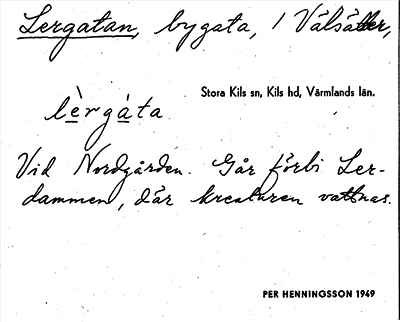 Lergatan, bygata, i Välsäter,
Stora Kils sn, Kils hd, Värmlands län.
lè̱rgàta
Vid Nordgården. Går förbi Ler-
dammen, där kreaturen vattnas.
PER HENNINGSSON 1949